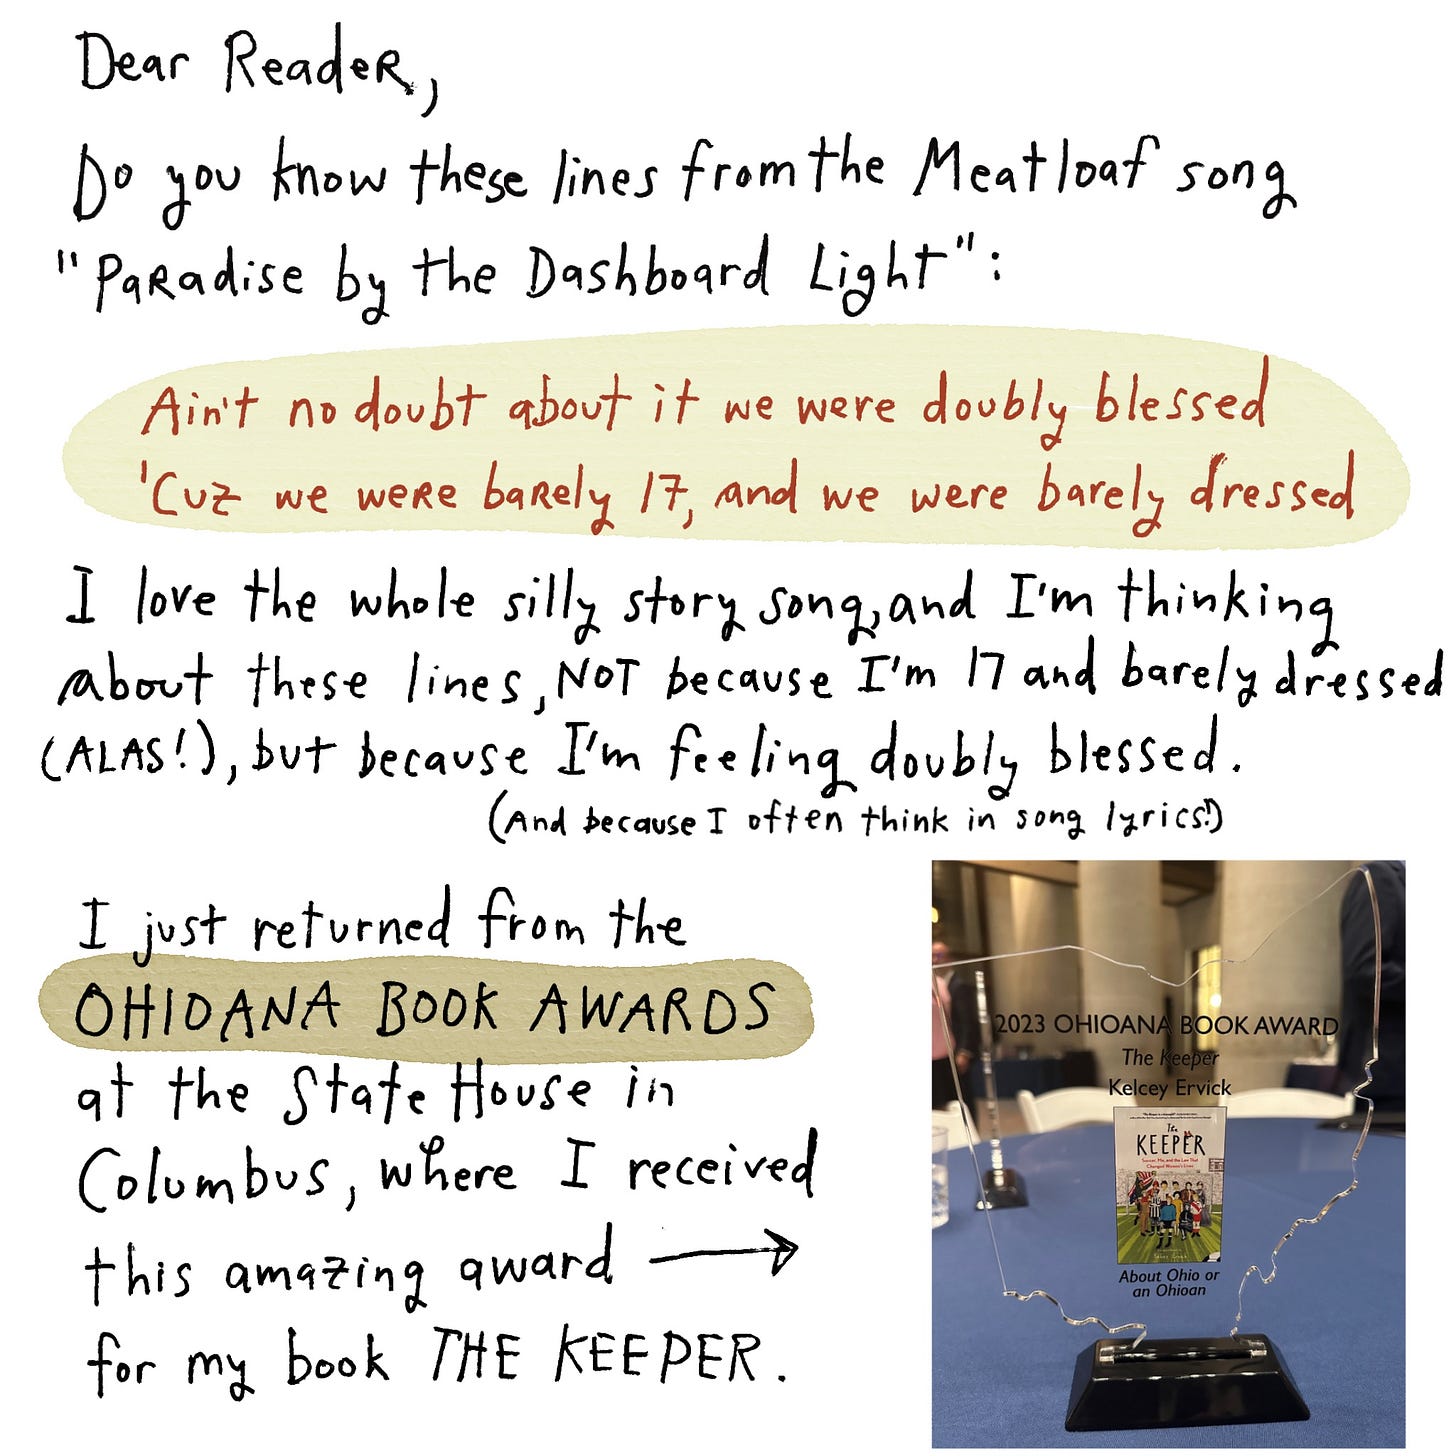 Dear Reader,
Do you know these lines from the Meatloaf song
"Paradise by the Dashboard Light":
Ain't no doubt about it we were doubly blessed
'Cuz we were barely 17, and we were barely dressed
I love the whole silly story song, and I'm thinking
about these lines, NOT because I'm 17 and barely dressed
(ALAS!), but because I'm feeling doubly blessed.
(And because I often think in song lyrics!)
I just returned from the
OHIOANA BOOK AWARDS
at the State House in
Columbus, where I received
this amazing award
for my book THE KEEPER.
2023 OHIOANA BOOK AWARD
The Keeper
Kelcey Ervick
The
KEEPER
Soccer, Me, and the Law That
Changed Women's Lives
About Ohio or
an Ohioan